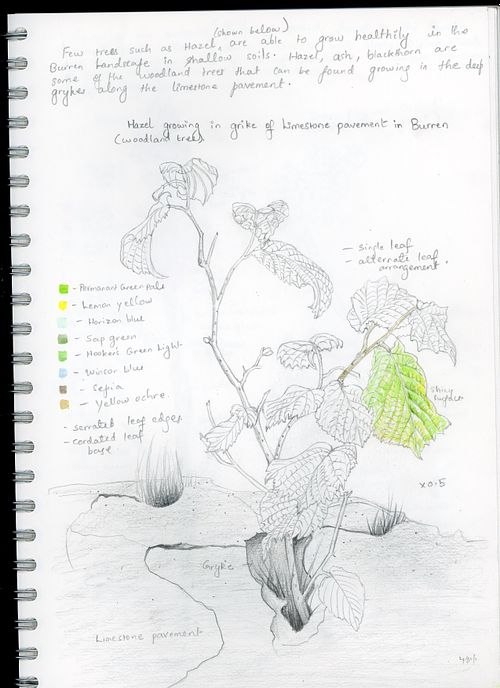 (shown below)
Few trees such as Hazel, are able to grow healthily in the
Burren landscape in shallow soils. Hazel, ash, blackthorn are
some of the woodland trees that can be found growing in the deep
grykes along the limestone pavement.
Hazel growing in grike of limestone pavement in Burren
(woodland tree).
- single leaf
- alternate leaf
arrangement.
- Permanant Green Pale
- Lemon yellow
- Horizon blue
- Sap green
- Hookers Green Light
- Winsor blue
- Sepia
- Yellow ochre
- serrated leaf edges
- cordated leaf
base
shiny
x0.5
Gryke
Limestone pavement